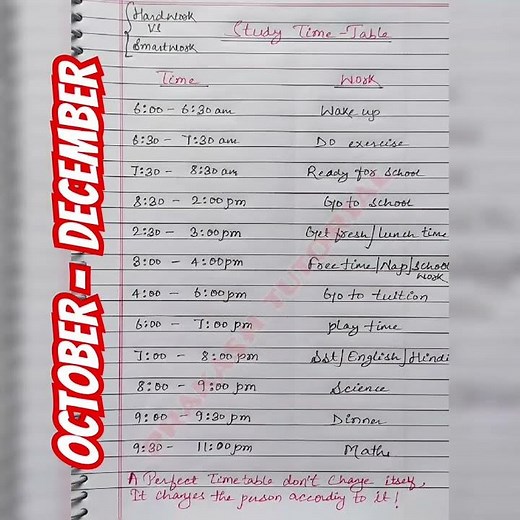 Hardwork
VS
Smartwork
Study Time-Table
Time Work
6:00 - 6:30 am Wake up
6:30 - 7:30 am Do exercise
7:30 - 8:30 am Ready for school
8:30 - 2:00 pm Go to school
2:30 - 3:00 pm Get fresh/lunch time
3:00 - 4:00 pm Free time/Nap/school work
4:00 - 6:00 pm Go to tuition
6:00 - 7:00 pm play time
7:00 - 8:00 pm SSt/English/Hindi
8:00 - 9:00 pm Science
9:00 - 9:30 pm Dinner
9:30 - 11:00 pm Maths
A Perfect Timetable don't change itself,
It changes the person according to it!
OCTOBER - DECEMBER
PRAKASH TUTORIAL